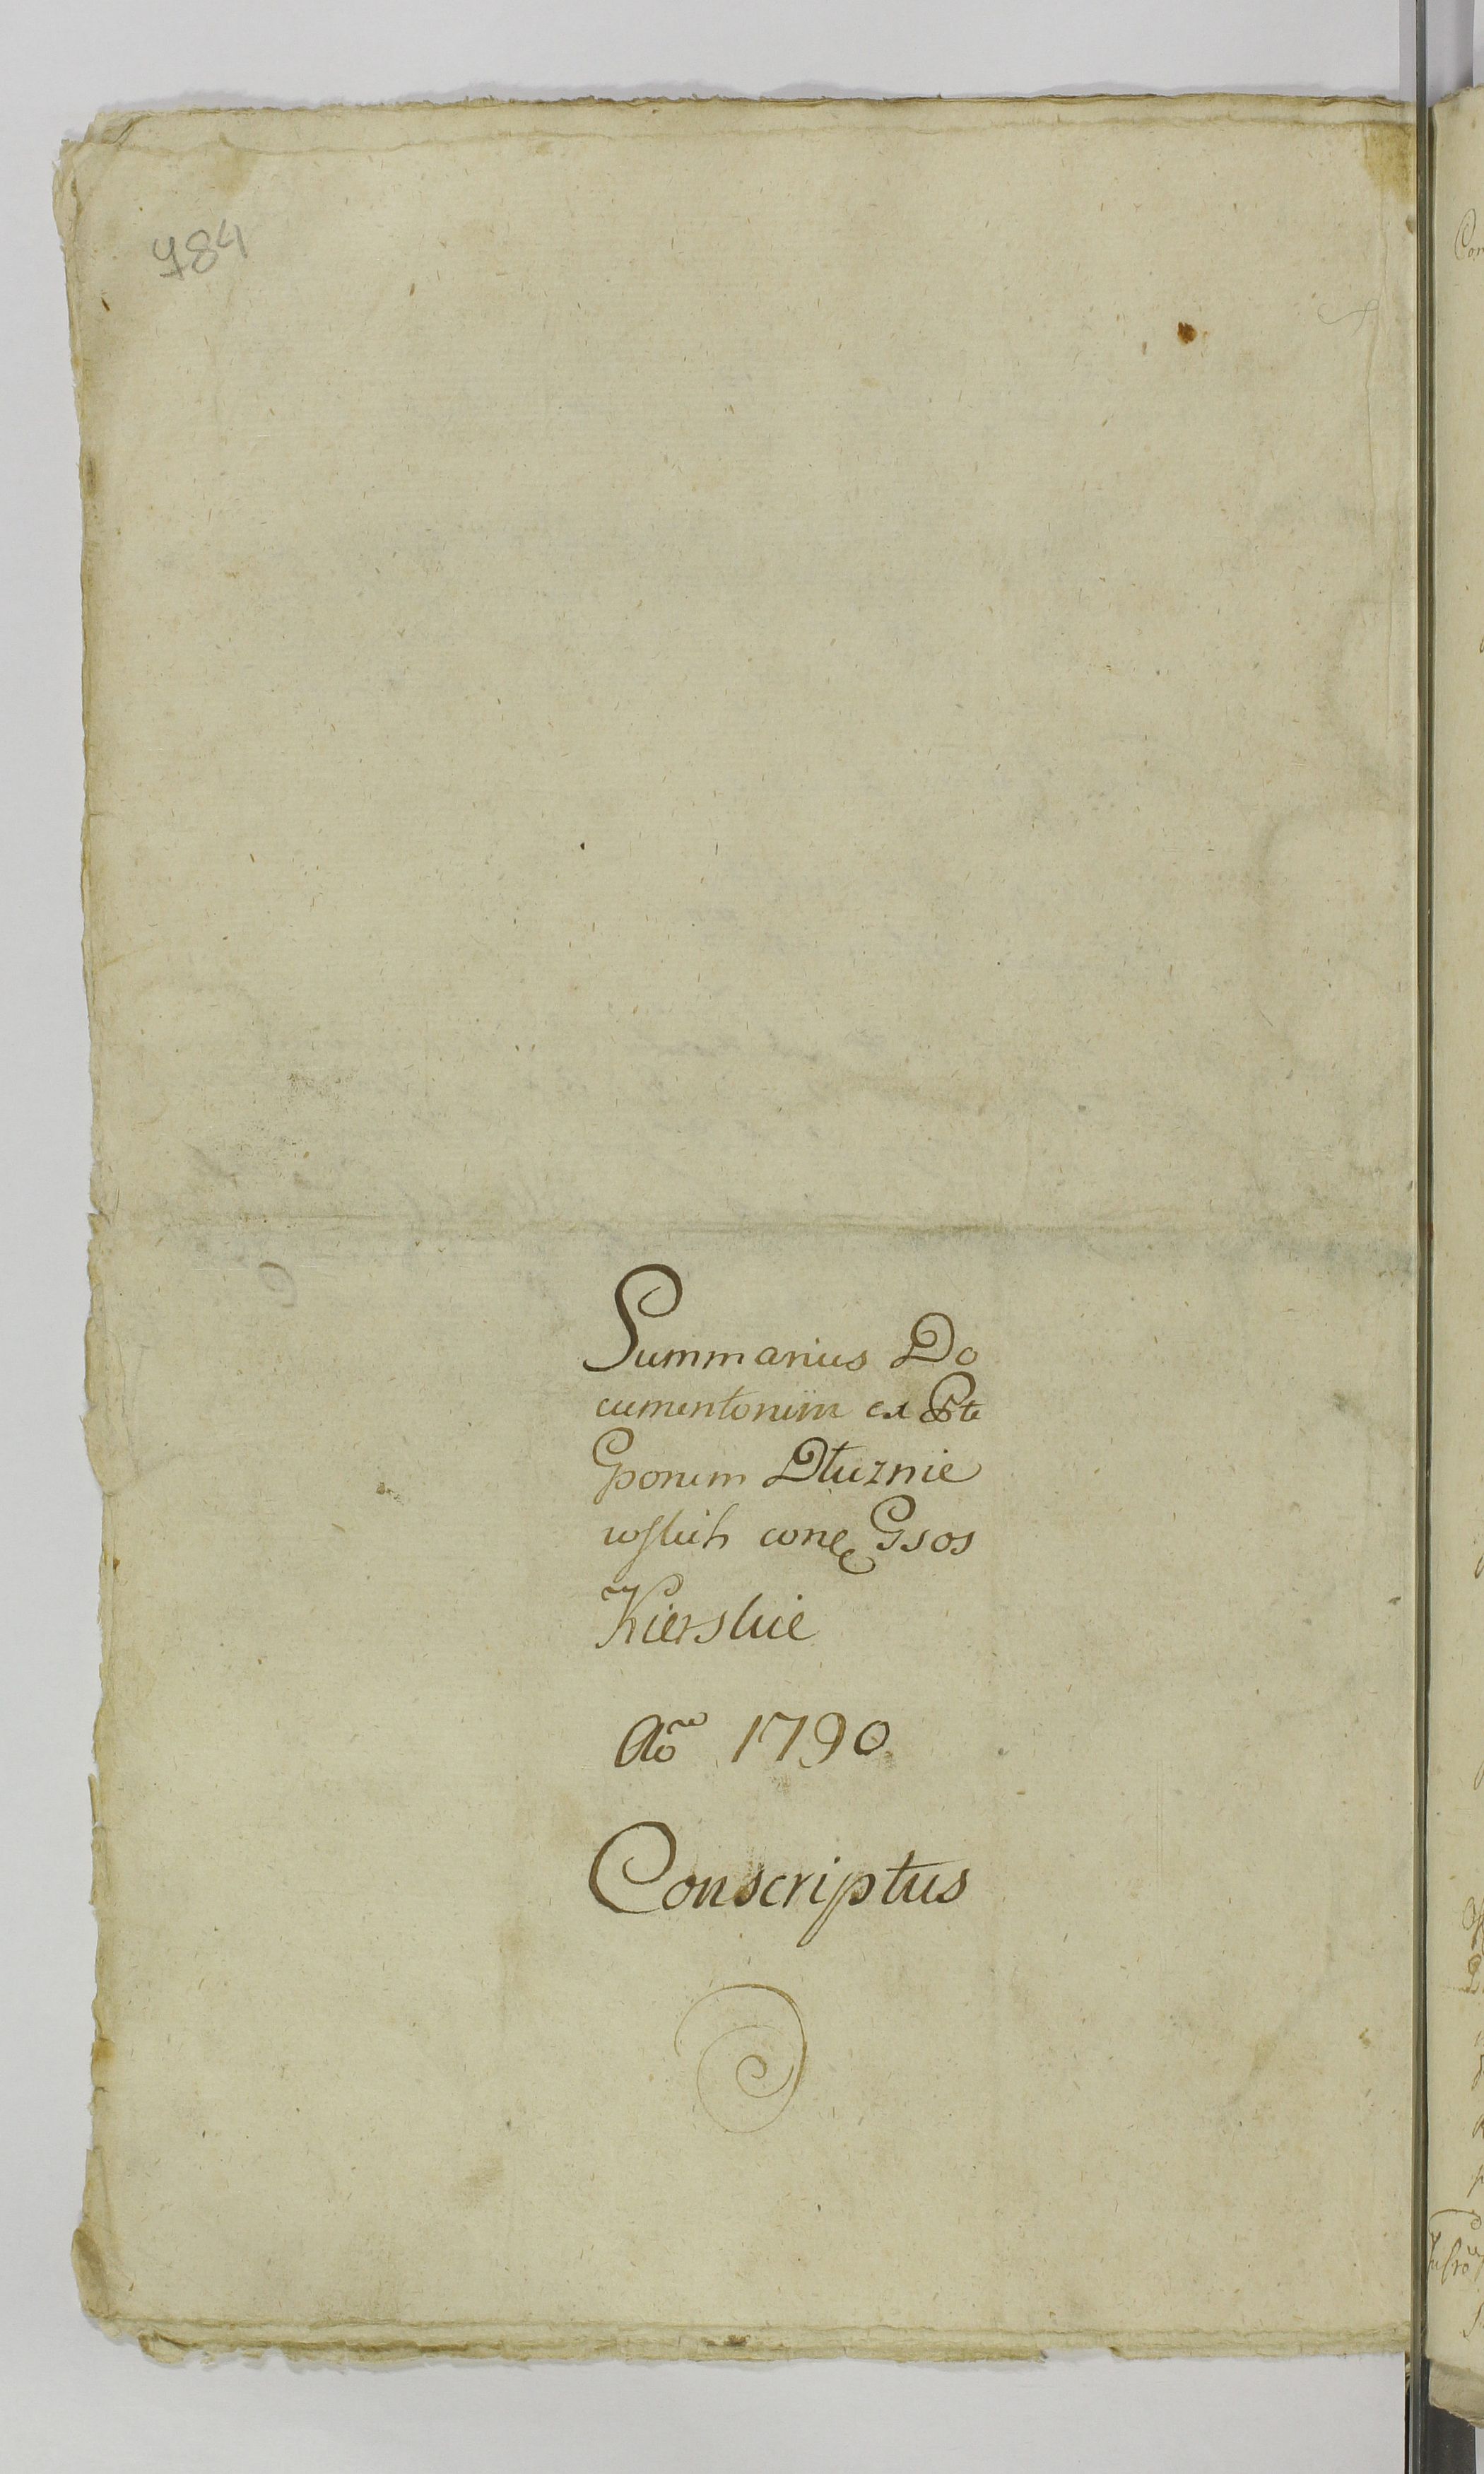 784
Summarius Do
cumentorum ex Pte
Gporum Dłuznie
wskich cone Gsos
Kierskie
Ao 1790
Conscriptus